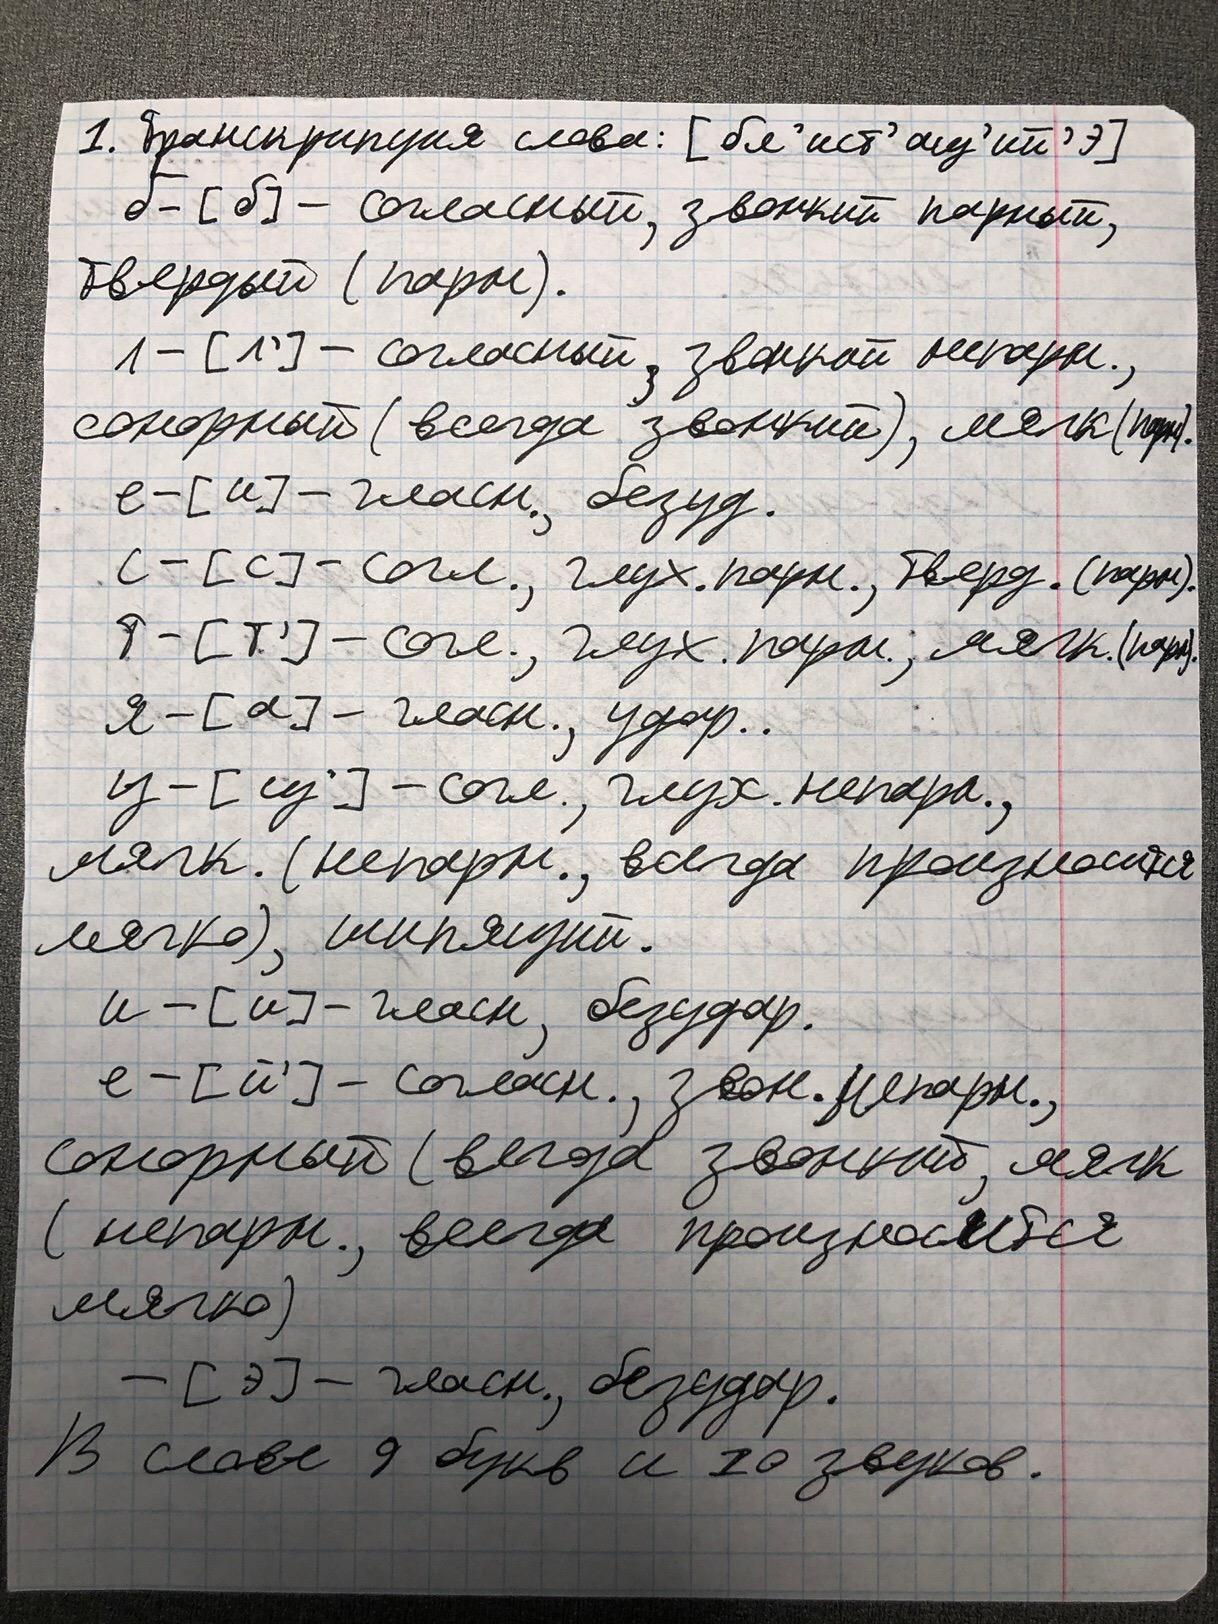 1. Транскрипция слова: [бл'ист'ащ'ий'э]
б-[б]- согласный, звонкий парный,
твердый (парн).
л-[л']- согласный, звонкий непарн.,
сонорный (всегда звонкий), мягк (парн).
е-[и]- гласн., безуд.
с-[с]- согл., глух. парн., тверд. (парн).
т-[т']- согл., глух. парн., мягк. (парн).
я-[а]- гласн., удар..
щ-[щ']-согл., глух. непарн.,
мягк. (непарн., всегда произносится
мягко), шипящий.
и-[и]- гласн, безудар.
е-[й']- согласн., звон. непарн.,
сонорный (всегда звонкий, мягк
(непарн., всегда произносится
мягко)
-[э]- гласн., безудар.
В слове 9 букв и 10 звуков.